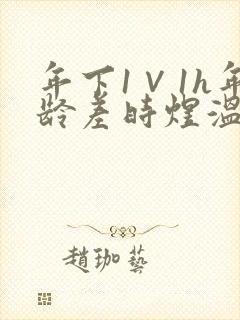 年下1V1h年
龄差时煜温
趙珈藝